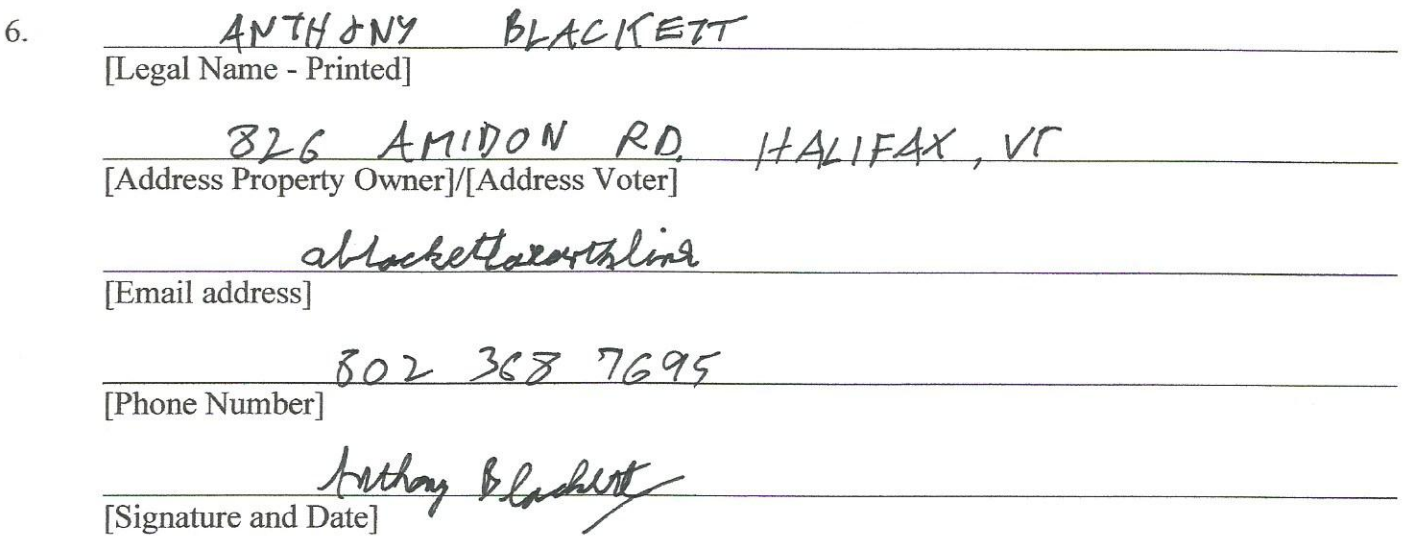 6. ANTHONY BLACKETT
[Legal Name - Printed]
826 AMIDON RD. HALIFAX, VT
[Address Property Owner]/[Address Voter]
[Email address]
802 368 7695
[Phone Number]
Anthony Blackett
[Signature and Date]